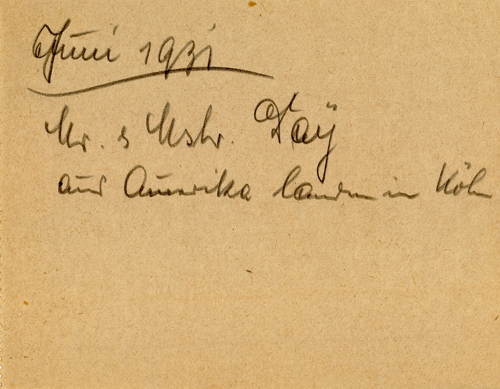 Juni 1931
Mr. & Mstr. Day
aus Amerika landen in Köln